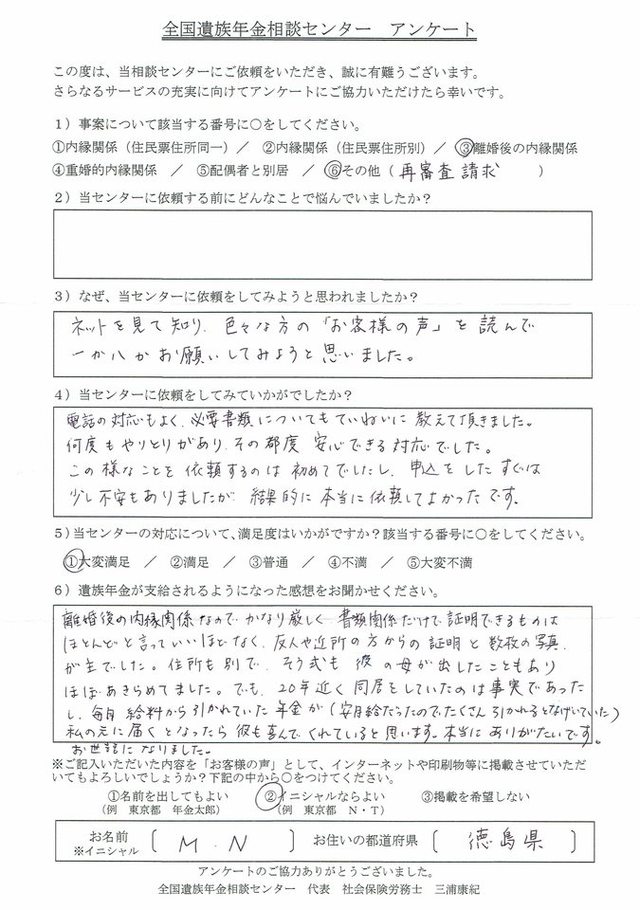 全国遺族年金相談センター　アンケート
この度は、当相談センターにご依頼をいただき、誠に有難うございます。
さらなるサービスの充実に向けてアンケートにご協力いただけたら幸いです。
1）事案について該当する番号に○をしてください。
①内縁関係（住民票住所同一）　／　②内縁関係（住民票住所別）／　③離婚後の内縁関係
④重婚的内縁関係　／　⑤配偶者と別居　／　⑥その他（再審査請求　　　）
2）当センターに依頼する前にどんなことで悩んでいましたか？
3）なぜ、当センターに依頼をしてみようと思われましたか？
ネットを見て知り、色々な方の「お客様の声」を読んで
一か八かお願いしてみようと思いました。
4）当センターに依頼をしてみていかがでしたか？
電話の対応もよく、必要書類についてもていねいに教えて頂きました。
何度もやりとりがあり、その都度 安心できる対応でした。
この様なことを依頼するのは初めてでしたし、申込をしたすぐは
少し不安もありましたが 結果的に本当に依頼してよかったです。
5）当センターの対応について、満足度はいかがですか？該当する番号に○をしてください。
①大変満足　／　②満足　／　③普通　／　④不満　／　⑤大変不満
6）遺族年金が支給されるようになった感想をお聞かせください。
離婚後の内縁関係なのでかなり厳しく 書類関係だけで証明できるものは
ほとんどと言っていいほどなく、友人や近所の方からの証明と数枚の写真
が主でした。住所も別で、そう式も彼の母が出したこともあり
ほぼあきらめてました。でも、20年近く同居をしていたのは事実であった
し、毎月給料から引かれていた年金が（安月給だったのでたくさん引かれるとなげいていた）
私の元に届くとなったら彼も喜んでくれていると思います。本当にありがたいです。
お世話になりました。
※ご記入いただいた内容を「お客様の声」として、インターネットや印刷物等に掲載させていただ
いてもよろしいでしょうか？下記の中から○をつけてください。
①名前を出してもよい　　②イニシャルならよい　　③掲載を希望しない
（例　東京都　年金太郎）　（例　東京都　N・T）
お名前　〔　M．N　〕　お住いの都道府県　〔　徳島県　〕
※イニシャル
アンケートのご協力ありがとうございました。
全国遺族年金相談センター　代表　社会保険労務士　三浦康紀